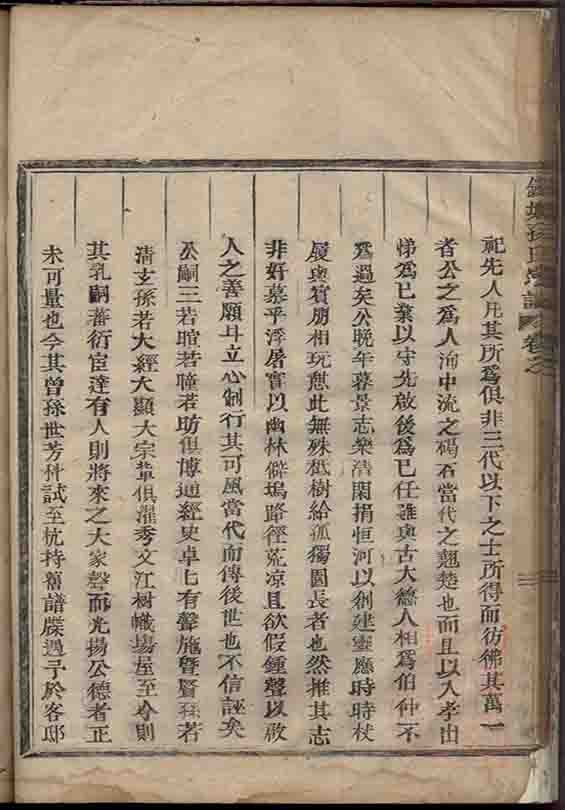 祀先人凡其所爲俱非三代以下之士所得而彷彿其萬一
者公之爲人洵中流之碣石當代之翹楚也而且以入孝出
悌爲已業以守先啟後爲已任雖與古大德人相爲伯仲不
爲過矣公晚年暮景志樂清閑捐恒河以創建靈應時時杖
履與賓朋相玩憇此無殊祗樹給孤獨園長者也然推其志
非好慕乎浮屠實以幽林僻塢路徑荒凉且欲假鍾聲以啟
人之善願斗立心制行其可風當代而傳後世也不信誣矣
公嗣三若暄若曈若昉俱博通經史卓乜有聲施暨賢孫若
清玄孫若大經大顯大宗軰俱濯秀文江树幟塲屋至今則
其乳嗣蕃衍宦達有人則將來之大家聲而光揚公德者正
未可量也今其曾孫世芳科試至杭持舊譜牒過予於客邸